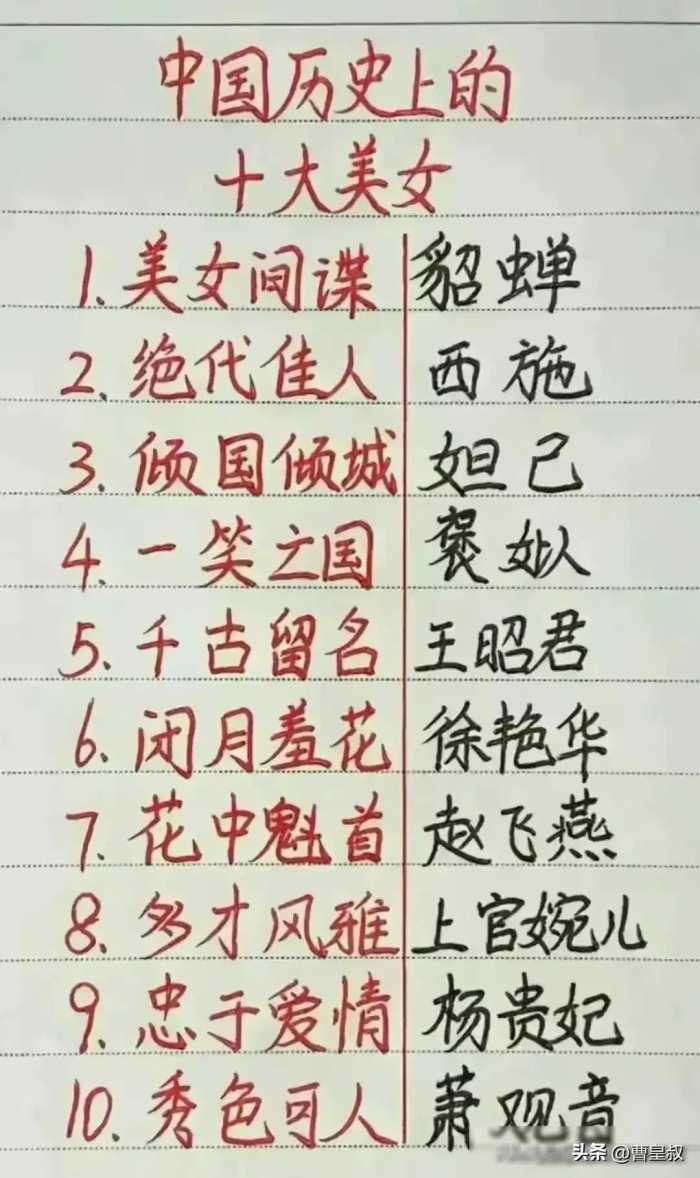 中国历史上的
十大美女
1.美女间谍 貂蝉
2.绝代佳人 西施
3.倾国倾城 妲己
4.一笑亡国 褒姒
5.千古留名 王昭君
6.闭月羞花 徐艳华
7.花中魁首 赵飞燕
8.多才风雅 上官婉儿
9.忠于爱情 杨贵妃
10.秀色可人 萧观音
头条@曹皇叔